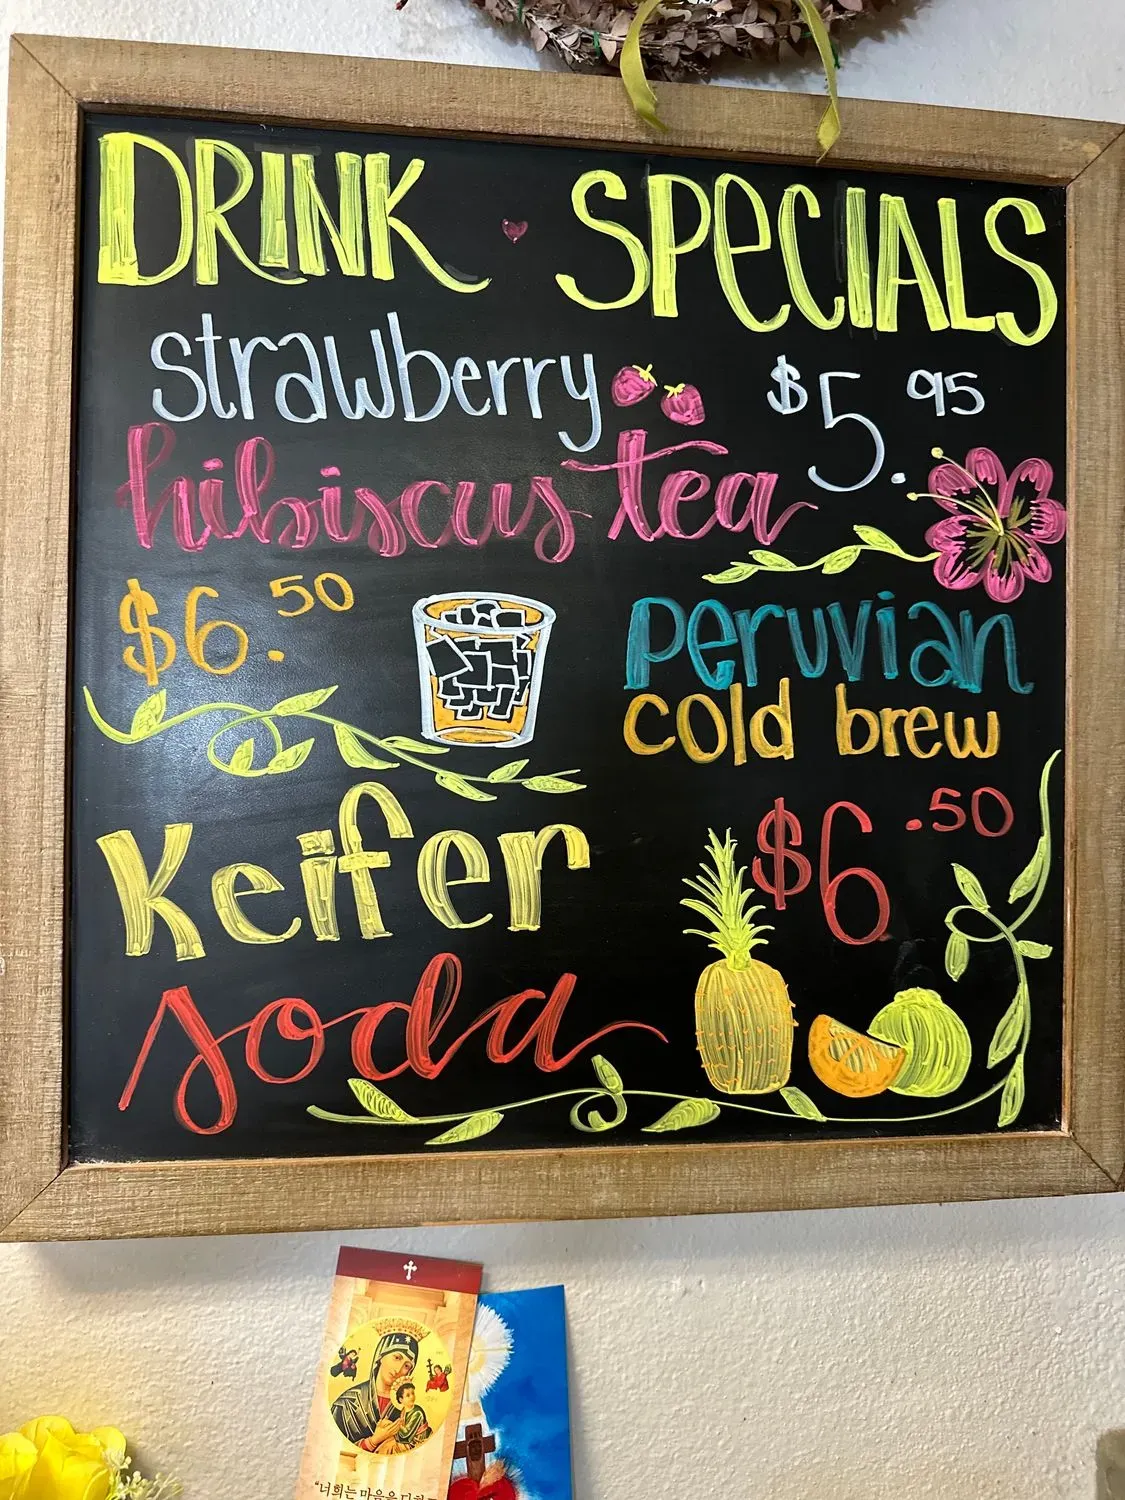 DRINK SPECIALS
strawberry $5.95
hibiscus tea
$6.50
Peruvian
cold brew
Keifer
soda
$6.50
"너희는 마음을 다하